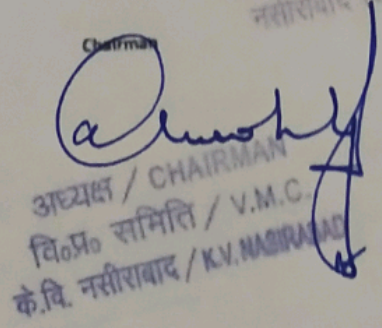 नसीराबाद
Chairman
अध्यक्ष / CHAIRMAN
वि०प्र० समिति / V.M.C.
के.वि. नसीराबाद / K.V. NASIRABAD